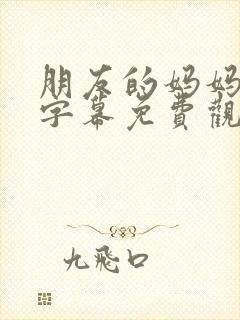 朋友的妈妈
字幕免費觀
九飛口